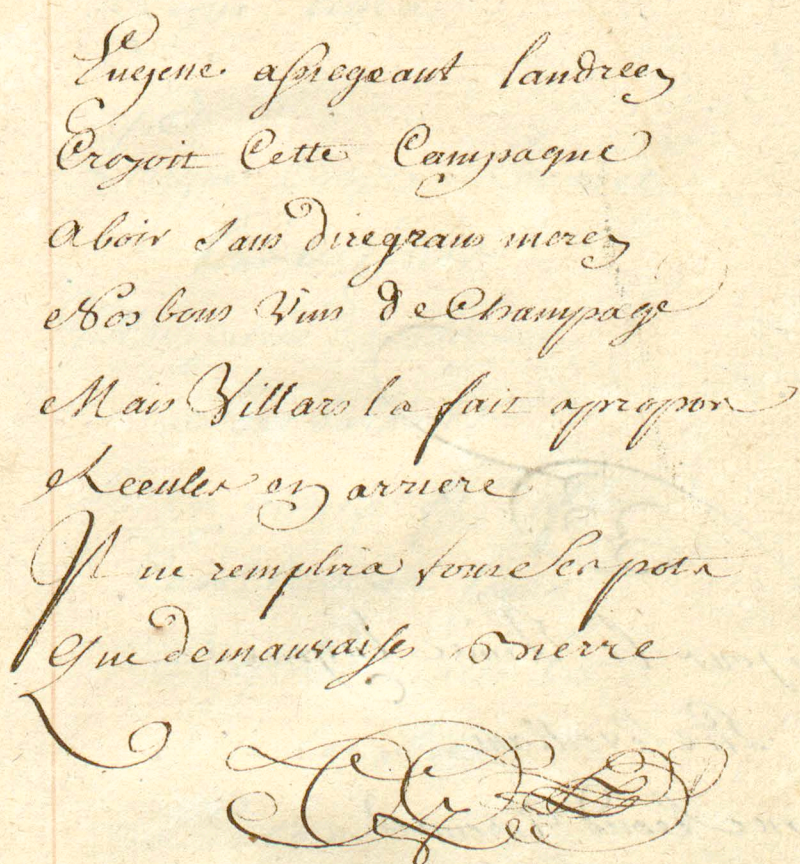 Eugene assiegeant landrecy
Croyoit Cette Campagne
Aboir sans dire grans mercy
Nos bons Vins de Champage
Mais Villars la fait apropos
Reculer en arriere
Il ne remplira tous Ses pots
Que de mauvaise Bierre